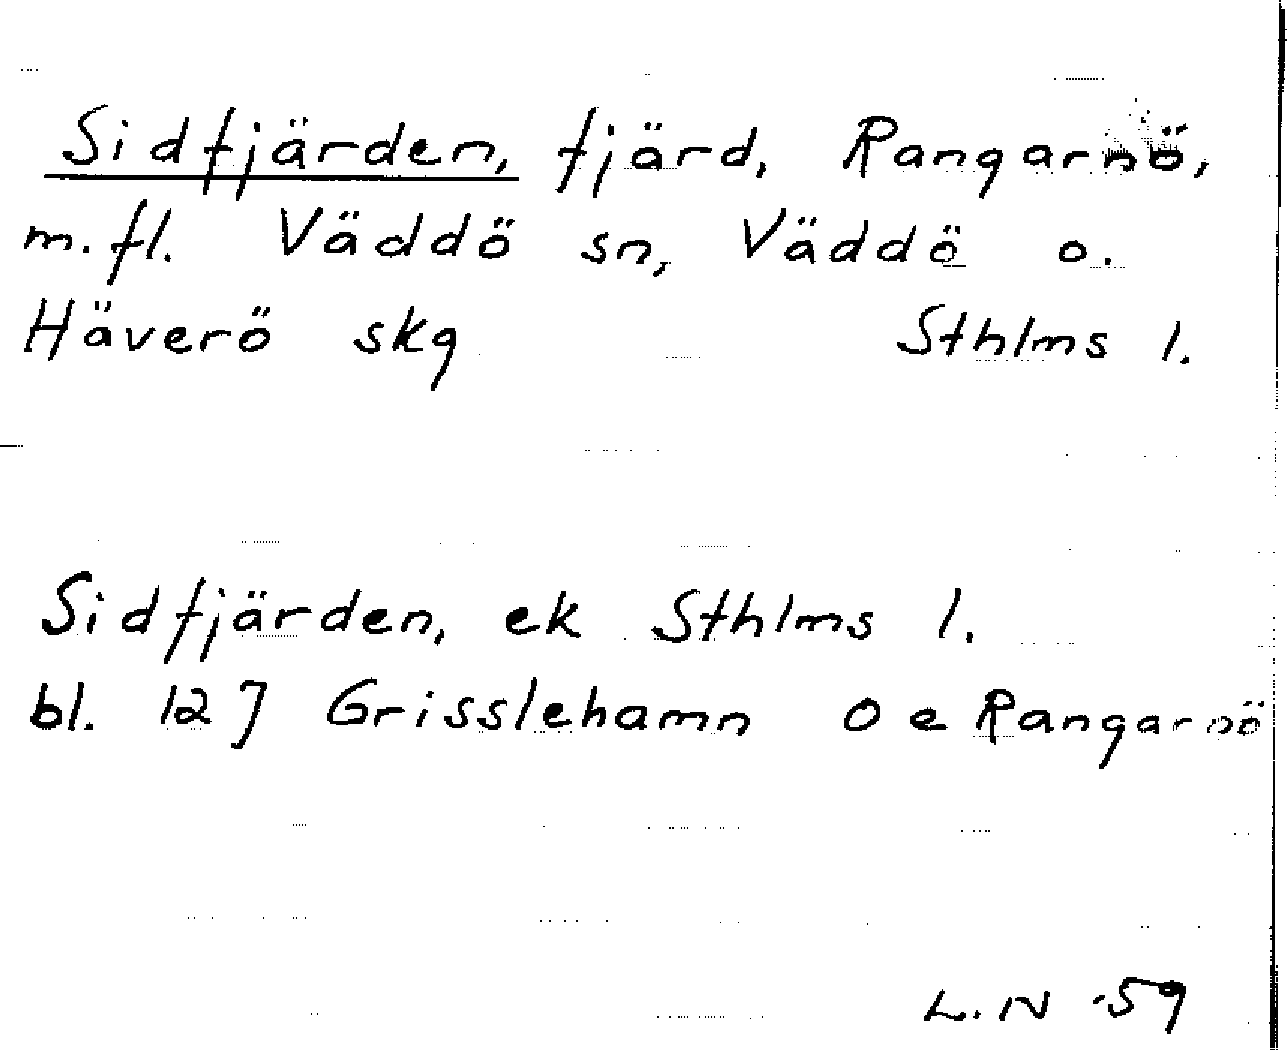 Sidfjärden, fjärd, Rangarnö,
m.fl. Väddö sn, Väddö o.
Häverö skg Sthlms l.
Sidfjärden, ek Sthlms l.
bl. 12J Grisslehamn O e Rangarnö
L.N -59